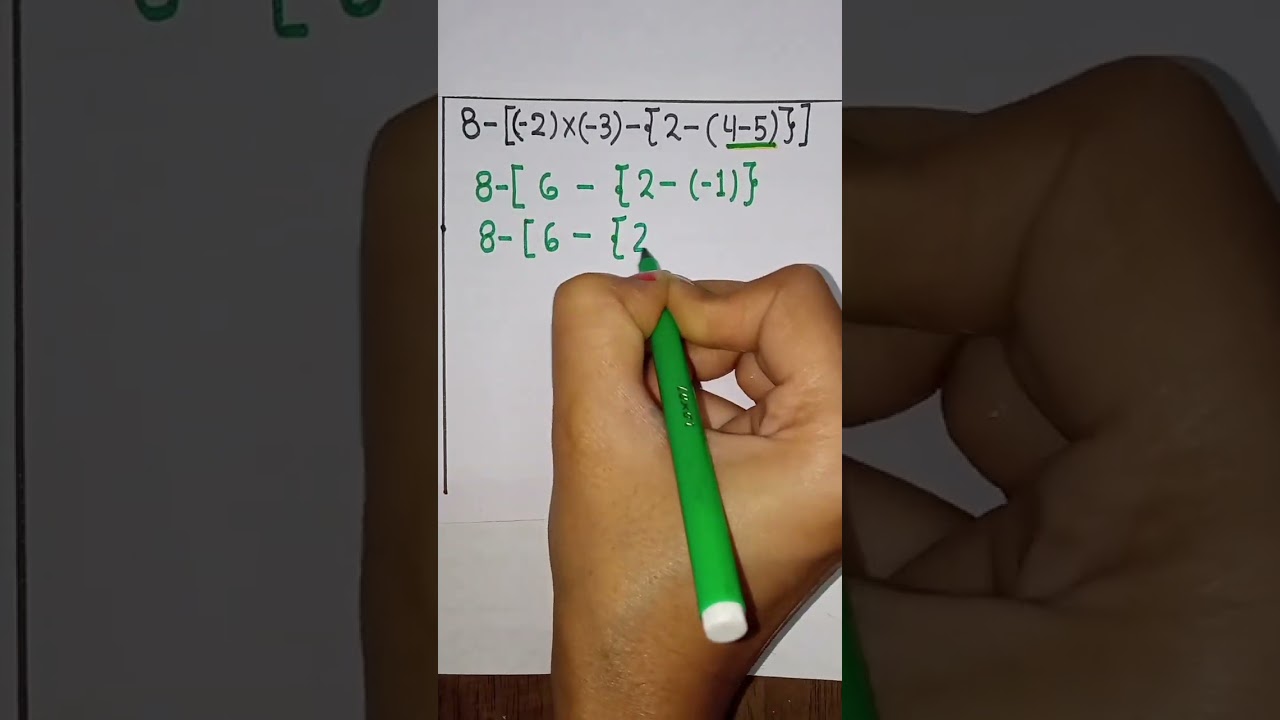 8-[(-2)×(-3)-{2-(4-5)}]
8-[ 6 - {2-(-1)}
8-[6 - {2